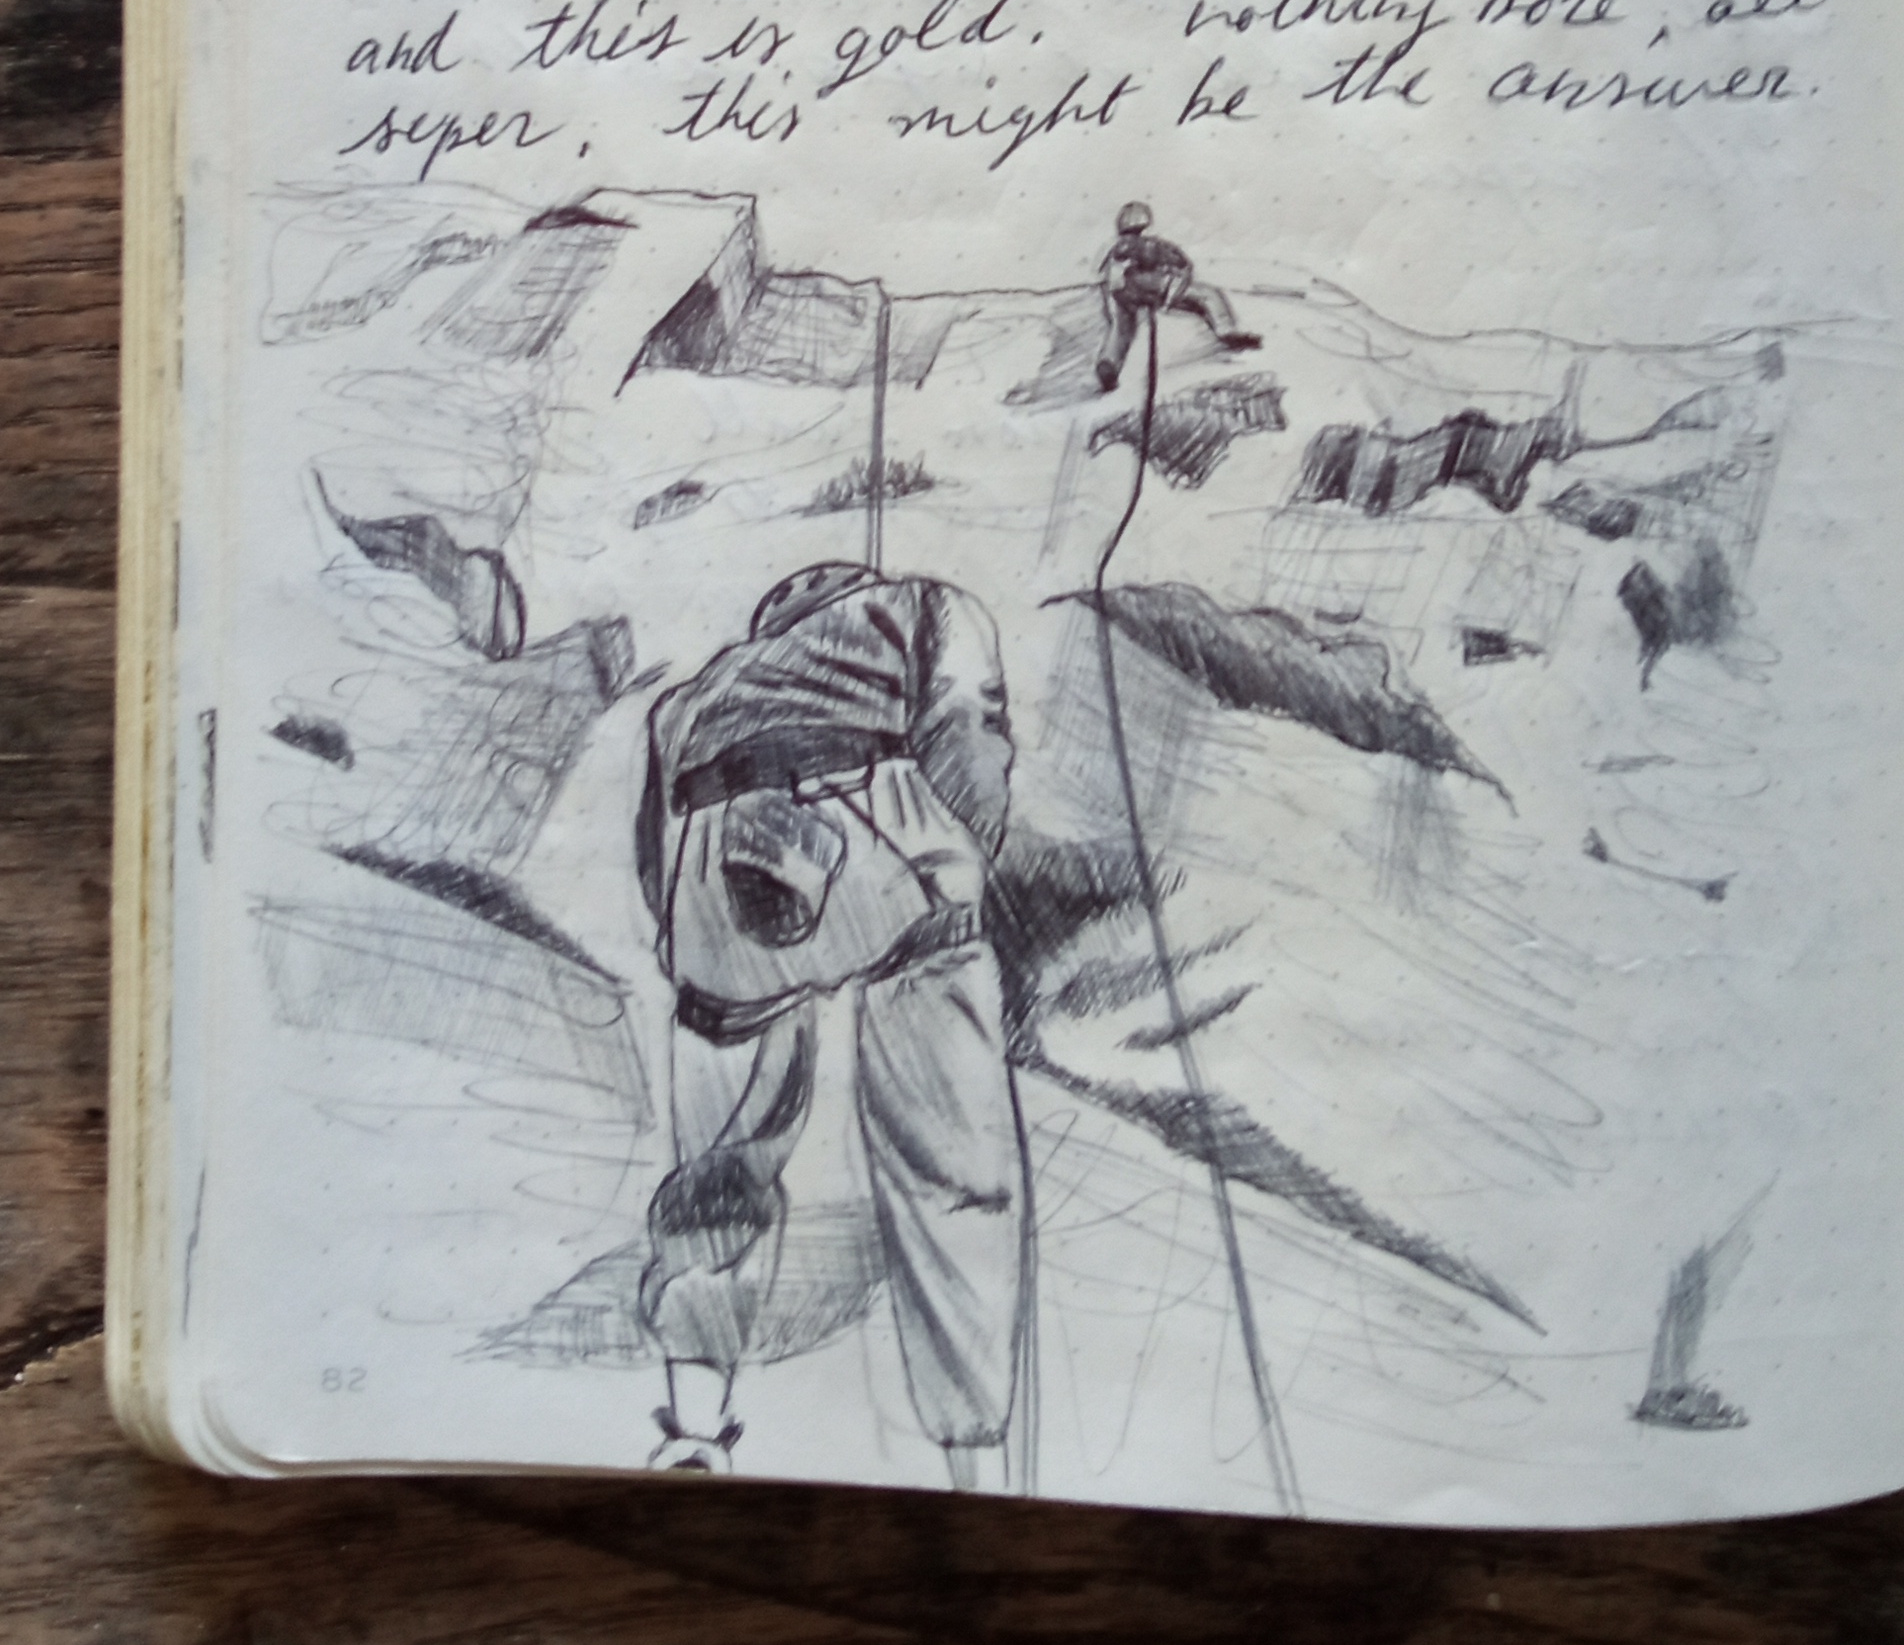 and this is gold. nothing more, all
seper, this might be the answer.
82